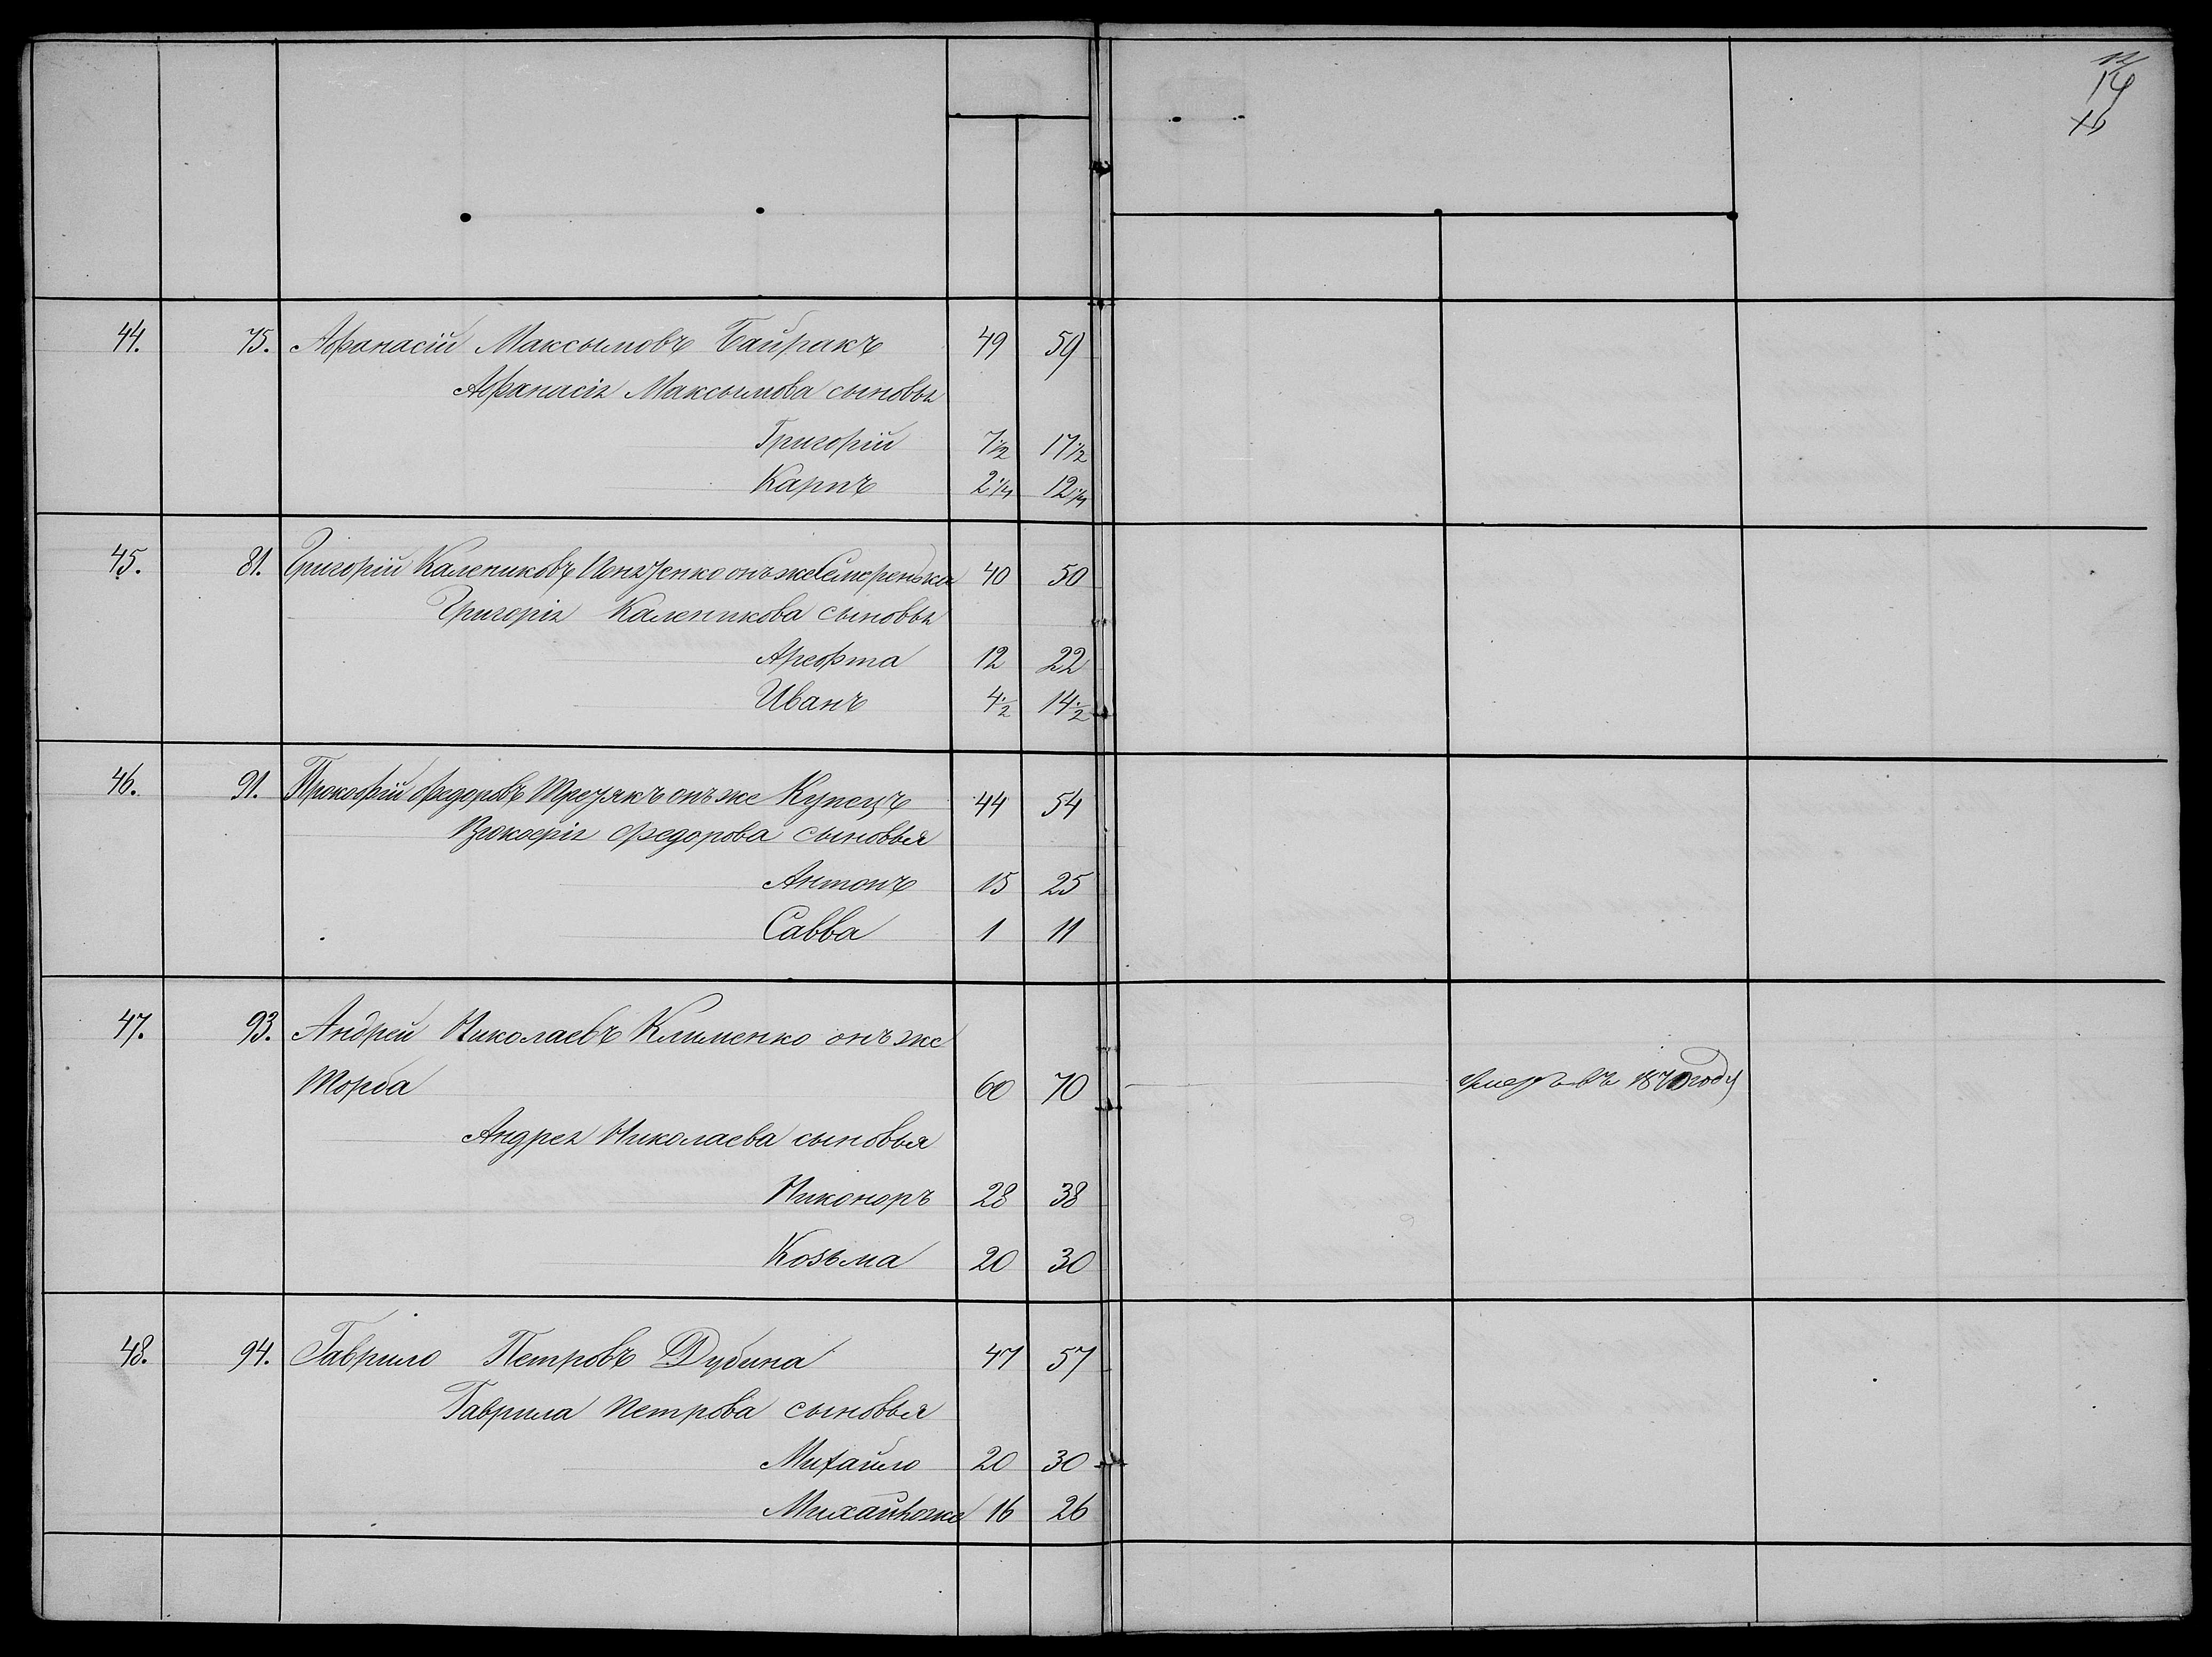 12
19
16
44. 75. Афанасій Максымовъ Байракъ 49 59
Афанасія Максымова сыновья
Григорій 7 1/2 17 1/2
Карпъ 2 1/4 12 1/4
45. 81. Григорій Калениковъ онъ же 40 50
Григорія Каленикова сыновья
Арефта 12 22
Иванъ 4 1/2 14 1/2
46. 91. Прокофій Федоровъ Трезякъ онъ же Купецъ 44 54
Прокофія Федорова сыновья
Антонъ 15 25
Савва 1 11
47. 93. Андрей Николаевъ Клименко онъ же
Торба 60 70 умеръ въ 1870 году
Андрея Николаева сыновья
Никоноръ 28 38
Козьма 20 30
48. 94. Гаврило Петровъ Дубина 47 57
Гаврила Петрова сыновья
Михайло 20 30
Михайло же 16 26